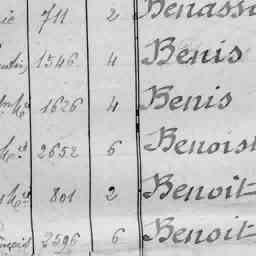 ie 711 2 Benassi
1546 4 Benis
1626 4 Benis
2652 6 Benoist
801 2 Benoit
2596 6 Benoit